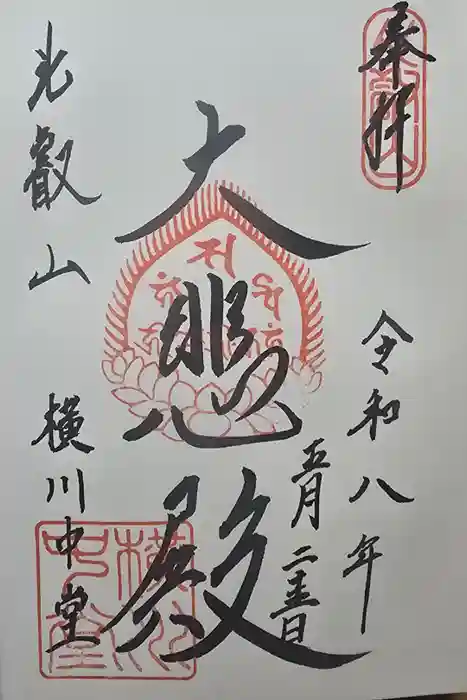 奉拝
令和八年
五月二十三日
大悲殿
比叡山 横川中堂
横川
中堂